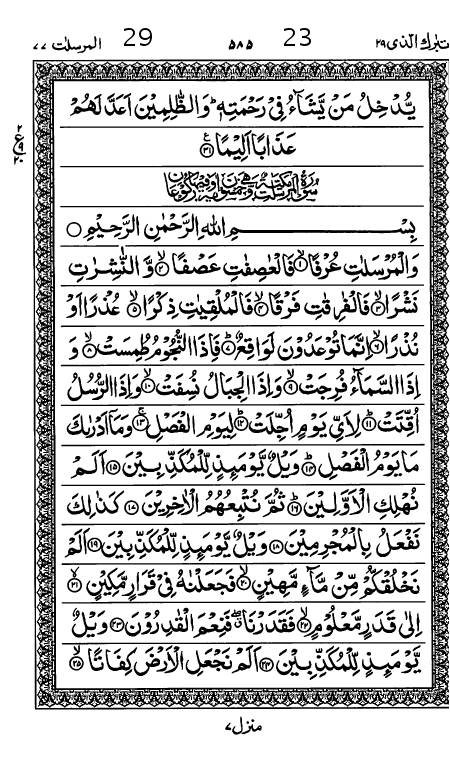 تبٰرك الّذی ۲۹ 23 ۵۸۵ 29 المرسلٰت ۷۷
يُّدْخِلُ مَنْ يَّشَآءُ فِيْ رَحْمَتِهٖ ؕ وَالظّٰلِمِيْنَ اَعَدَّ لَهُمْ
عَذَابًا اَلِيْمًا ﴿۳۱﴾
بِسْــــــــمِ اللهِ الرَّحْمٰنِ الرَّحِيْمِ
وَالْمُرْسَلٰتِ عُرْفًا ۙ﴿۱﴾ فَالْعٰصِفٰتِ عَصْفًا ۙ﴿۲﴾ وَّالنّٰشِرٰتِ
نَشْرًا ۙ﴿۳﴾ فَالْفٰرِقٰتِ فَرْقًا ۙ﴿۴﴾ فَالْمُلْقِيٰتِ ذِكْرًا ۙ﴿۵﴾ عُذْرًا اَوْ
نُذْرًا ۙ﴿۶﴾ اِنَّمَا تُوْعَدُوْنَ لَوَاقِعٌ ؕ﴿۷﴾ فَاِذَا النُّجُوْمُ طُمِسَتْ ۙ﴿۸﴾ وَ
اِذَا السَّمَآءُ فُرِجَتْ ۙ﴿۹﴾ وَاِذَا الْجِبَالُ نُسِفَتْ ۙ﴿۱۰﴾ وَاِذَا الرُّسُلُ
اُقِّتَتْ ؕ﴿۱۱﴾ لِاَيِّ يَوْمٍ اُجِّلَتْ ؕ﴿۱۲﴾ لِيَوْمِ الْفَصْلِ ۚ﴿۱۳﴾ وَمَاۤ اَدْرٰىكَ
مَا يَوْمُ الْفَصْلِ ؕ﴿۱۴﴾ وَيْلٌ يَّوْمَئِذٍ لِّلْمُكَذِّبِيْنَ ﴿۱۵﴾ اَلَمْ
نُهْلِكِ الْاَوَّلِيْنَ ؕ﴿۱۶﴾ ثُمَّ نُتْبِعُهُمُ الْاٰخِرِيْنَ ﴿۱۷﴾ كَذٰلِكَ
نَفْعَلُ بِالْمُجْرِمِيْنَ ﴿۱۸﴾ وَيْلٌ يَّوْمَئِذٍ لِّلْمُكَذِّبِيْنَ ﴿۱۹﴾ اَلَمْ
نَخْلُقْكُّمْ مِّنْ مَّآءٍ مَّهِيْنٍ ۙ﴿۲۰﴾ فَجَعَلْنٰهُ فِيْ قَرَارٍ مَّكِيْنٍ ۙ﴿۲۱﴾
اِلٰى قَدَرٍ مَّعْلُوْمٍ ۙ﴿۲۲﴾ فَقَدَرْنَا ۖ فَنِعْمَ الْقٰدِرُوْنَ ﴿۲۳﴾ وَيْلٌ
يَّوْمَئِذٍ لِّلْمُكَذِّبِيْنَ ﴿۲۴﴾ اَلَمْ نَجْعَلِ الْاَرْضَ كِفَاتًا ۙ﴿۲۵﴾
منزل ۷